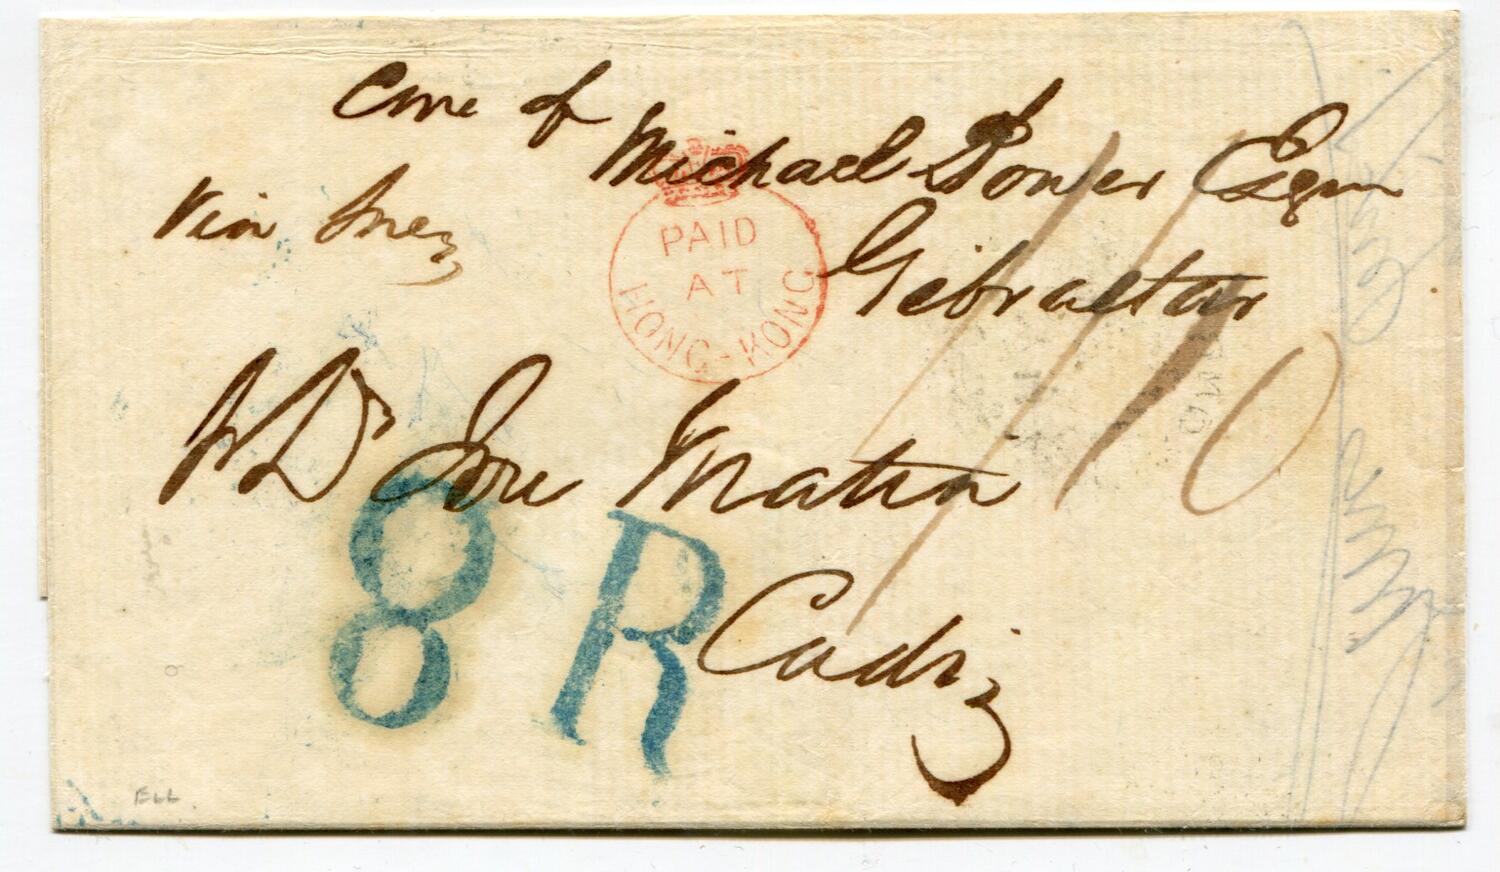 Care of
Michael Power Esqre
Gibraltar
Via Suez
PAID
AT
HONG-KONG
Sr Dn Jose Matia
Cadiz
8 R
1/10
ELL